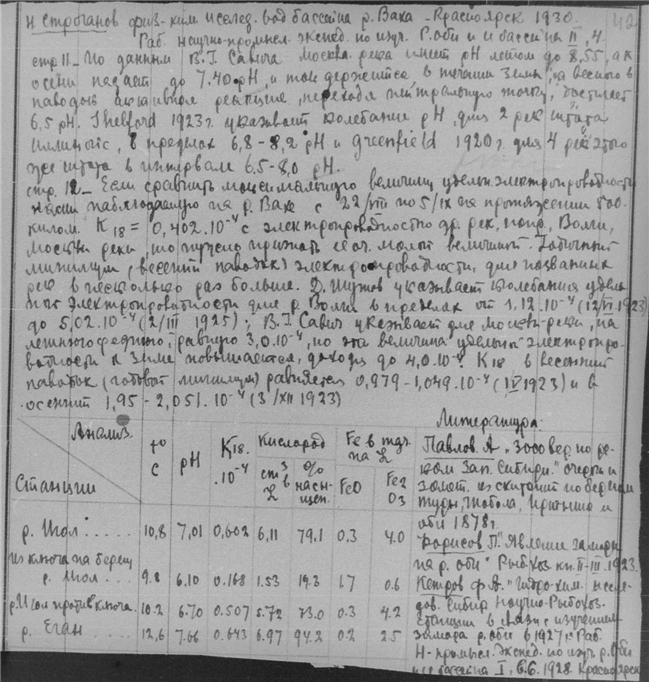 Н Строганов физ-хим исслед. вод бассейна р. Ваха - Красноярск 1930.
Раб. Научно-промысл. экспед. по изуч. р. оби и ее бассейна II, 4.
стр 11 - По данным В. Г. Савича Москва река имеет pH летом до 8,55, а к
осени падает до 7.40 pH, и там держится в течении зимы, а весною в
паводок активная реакция, переходя нейтральную точку, достигает
6,5 pH. Shelford 1923 г. указывает колебание pH, для 2 рек штата
Иллинойс, в пределах 6,8 - 8,2 pH и Greenfield 1920 г. для 4 рек этого
же штата в интервале 6,5 - 8,0 pH.
стр. 12 - Если сравнить максимальную величину удельн. электропроводности
нами наблюдаемую на р. Вахе с 22/VIII по 5/IX на протяжении 500
килом. K18 = 0,402.10-4 с электропроводностью др. рек, напр., Волги,
Москвы реки, то нужно признать ее оч. малой величиной. Годичный
минимум (весенний паводок) электропроводности, для названных
рек в несколько раз больше. Д. Шутов указывает колебания удель
ной электропроводности для р. Волги в пределах от 1,12.10-4 (12/VI 1923)
до 5,02.10-4 (2/III 1925); В. Г. Савич указывает для Москвы-реки, на
летнюю среднюю, равную 3,0.10-4, но эта величина удельн. электропро-
водности к зиме повышается, доходя до 4,0.10-4. K18 в весенний
паводок (годовой минимум) равняется 0,979 - 1,049.10-4 (IV 1923) и в
осенний 1,95 - 2,051.10-4 (3/XII 1923)
Анализ
Станции
t° C
pH
K18. 10-4
Кислород
см3 в L
% насыщен.
Fe в mgr. на L
FeO
Fe2O3
р. Мол ..... 10,8 7,01 0,602 6,11 79.1 0.3 4.0
Из ключа на берегу
р. Мол .... 9.8 6.10 0.168 1.53 19.3 1.7 0.6
против ключа. 10.2 6.70 0.507 5.72 73.0 0.3 4.2
р. Еган 12,6 7.66 0.643 6.97 94.2 0.2 2.5
Литература:
Павлов. А "3000 вер. по ре-
кам Зап. Сибири." очерки и
замет. из скитаний по берегам
Туры, Тобола, Иртыша и
оби 1878 г.
Борисов П. "Явление замора
на р. оби" Рыб. хоз кн. II-III. 1923.
"Гидро-хим. исслед-
дов. Сибир Научно-Рыбохоз.
Станции в связи с изучением
замора р. оби в 1927 г. Раб.
Н-промысл. экспед. по изуч р. Оби
и ее бассейна I, в. 6. 1928. Красноярск